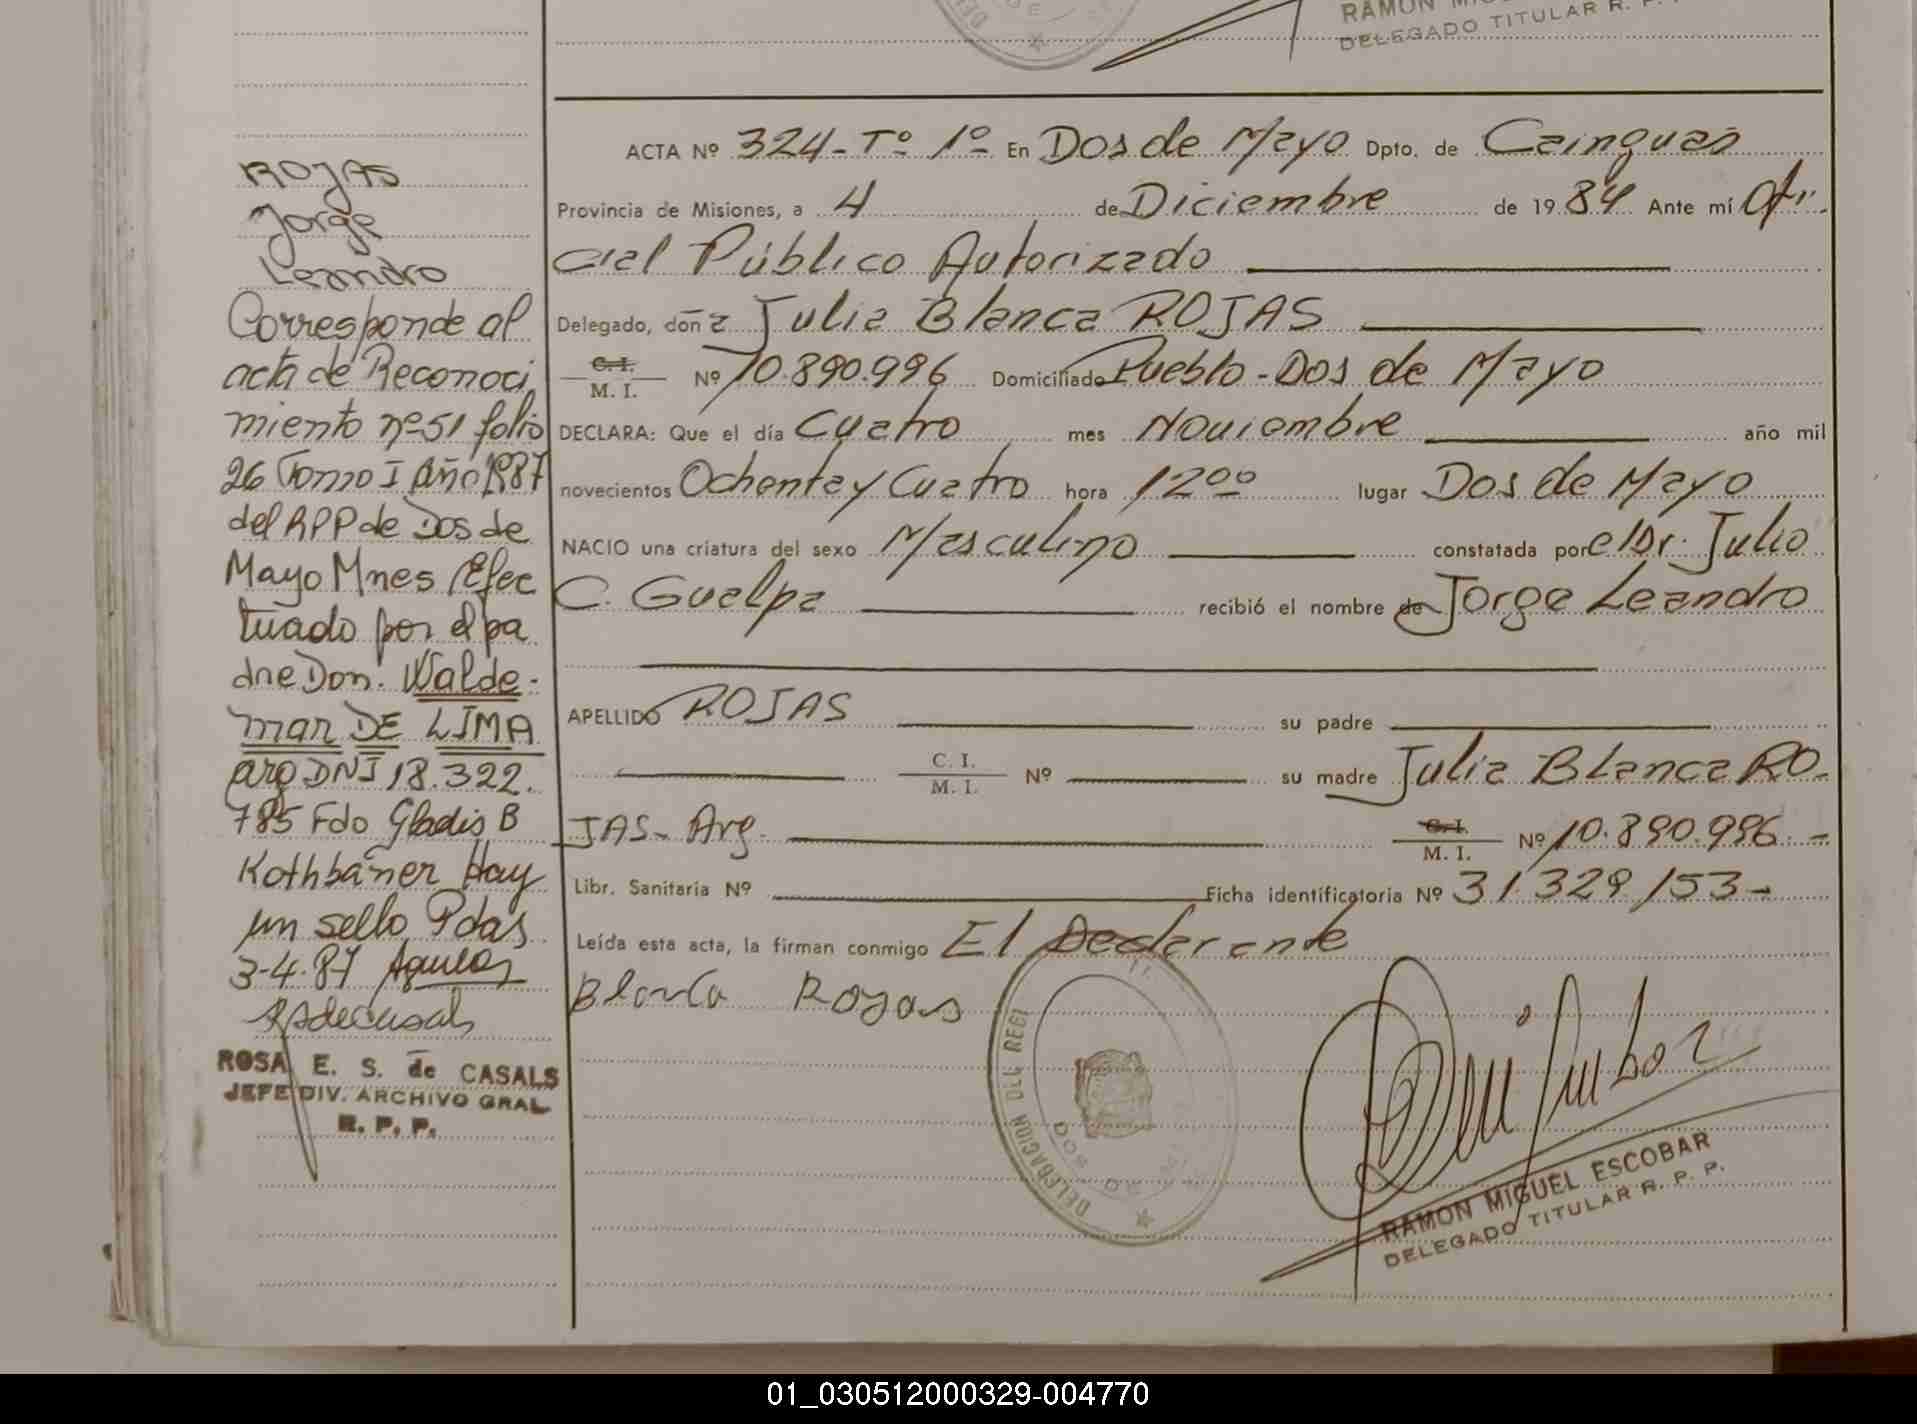 RAMON MIG
DELEGADO TITULAR R. P.
ROJAS
Jorge
Leandro
Corresponde al
acta de Reconoci
miento nº 51 folio
26 Tomo I Año 1987
del RPP de Dos de
Mayo Mnes Efec
tuado por el pa
dre Don: Walde-
mar DE LIMA
arg DNI 18.322.
785 Fdo Gladis B
Kothbäner Hay
un sello Pdas
3-4-87
ROSA E. S. de CASALS
JEFE DIV. ARCHIVO GRAL
R. P. P.
ACTA Nº 324-Tº 1º En Dos de Mayo Dpto. de Cainguas
Provincia de Misiones, a 4 de Diciembre de 1984 Ante mí Ofi-
cial Público Autorizado
Delegado, doña Julia Blanca ROJAS
C. I. / M. I. Nº 10.890.996 Domiciliado Pueblo-Dos de Mayo
DECLARA: Que el día Cuatro mes Noviembre año mil
novecientos Ochenta y Cuatro hora 12ºº lugar Dos de Mayo
NACIO una criatura del sexo Masculino constatada por el Dr. Julio
C. Guelpa recibió el nombre de Jorge Leandro
APELLIDO ROJAS su padre
C. I. / M. I. Nº su madre Julia Blanca RO-
JAS- Arg. C. I. / M. I. Nº 10.890.996.-
Libr. Sanitaria Nº Ficha identificatoria Nº 31.329/53-
Leída esta acta, la firman conmigo El Declarante
Blanca Rojas
DELEGACION DEL REGI
RAMON MIGUEL ESCOBAR
DELEGADO TITULAR R. P. P.
01_030512000329-004770